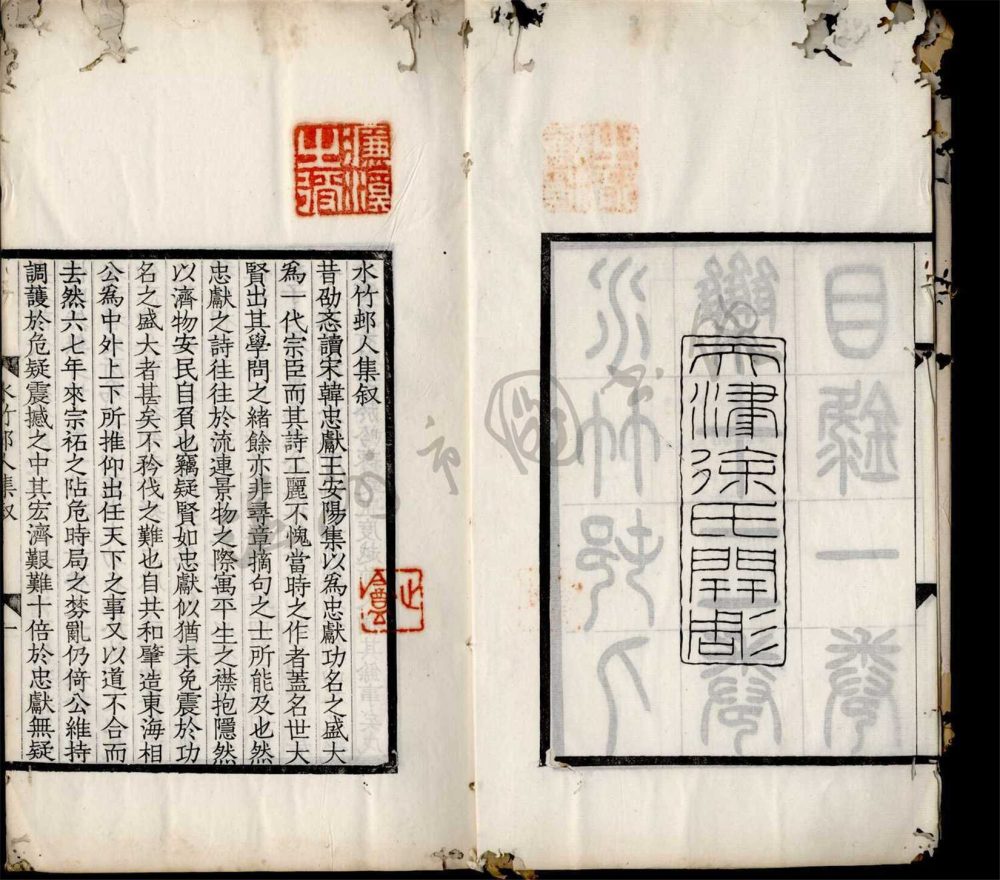 目錄一卷
天津徐氏開雕
水竹邨人
濂溪之後
水竹邨人集叙
昔劭忞讀宋韓忠獻王安陽集以爲忠獻功名之盛大
爲一代宗臣而其詩工麗不愧當時之作者蓋名世大
賢出其學問之緒餘亦非尋章摘句之士所能及也然
忠獻之詩往往於流連景物之際寓平生之襟抱隱然
以濟物安民自負也竊疑賢如忠獻似猶未免震於功
名之盛大者甚矣不矜伐之難也自共和肇造東海相
公爲中外上下所推仰出任天下之事又以道不合而
去然六七年來宗祏之阽危時局之棼亂仍倚公維持
調護於危疑震撼之中其宏濟艱難十倍於忠獻無疑
水竹邨人集叙
一